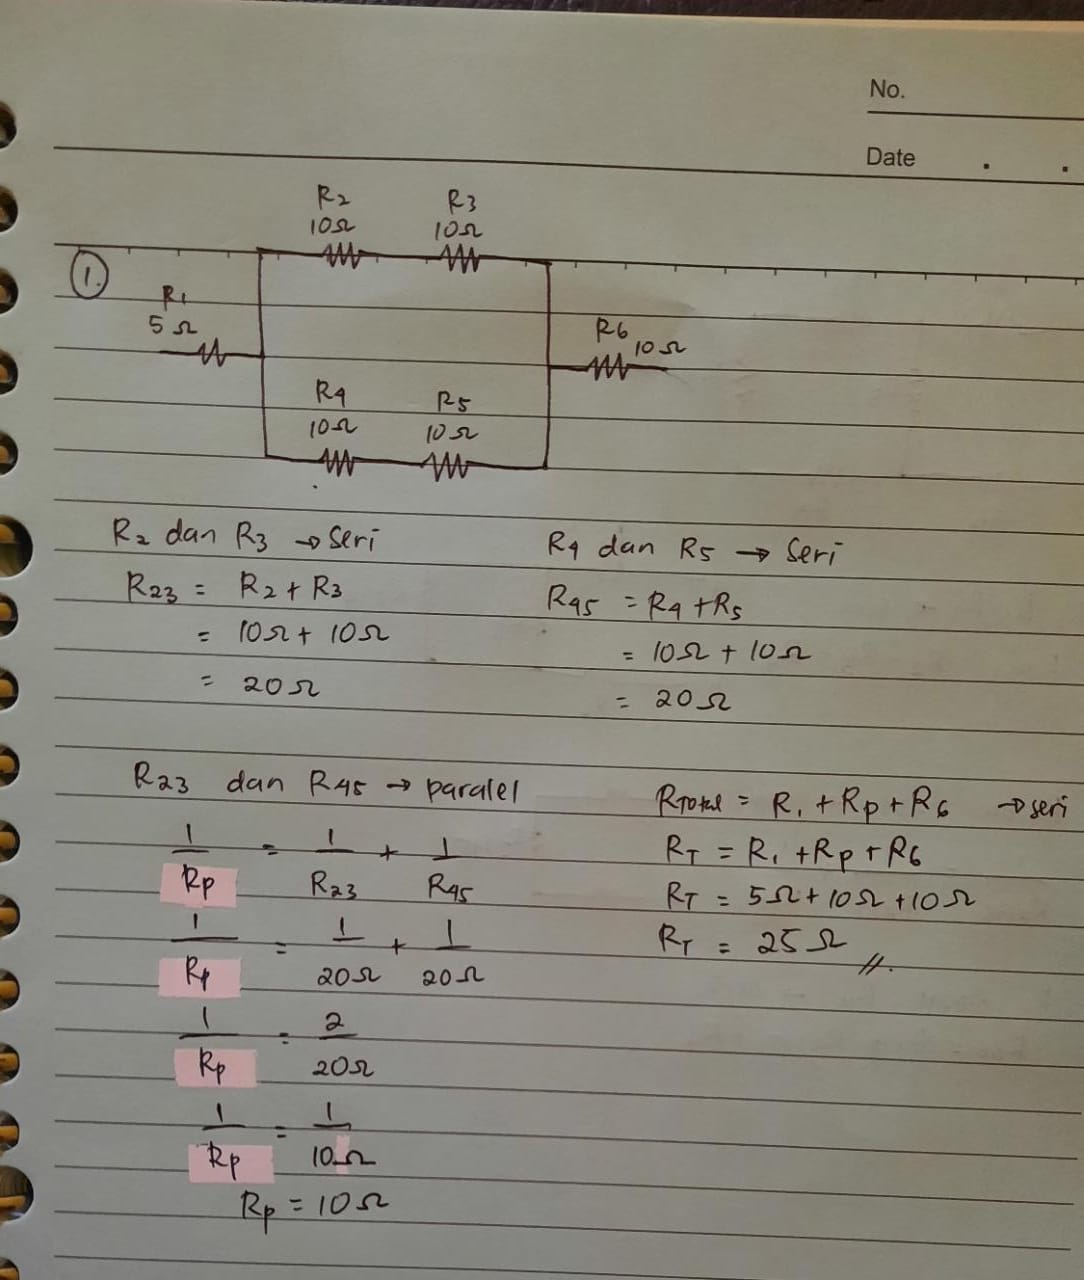 No.
Date . .
R2 R3
10Ω 10Ω
1.
R1
5Ω
R6
10Ω
R4 R5
10Ω 10Ω
R2 dan R3 → Seri
R23 = R2 + R3
= 10Ω + 10Ω
= 20Ω
R4 dan R5 → Seri
R45 = R4 + R5
= 10Ω + 10Ω
= 20Ω
R23 dan R45 → paralel
1/Rp = 1/R23 + 1/R45
1/Rp = 1/20Ω + 1/20Ω
1/Rp = 2/20Ω
1/Rp = 1/10Ω
Rp = 10Ω
RTotal = R1 + Rp + R6 → seri
RT = R1 + Rp + R6
RT = 5Ω + 10Ω + 10Ω
RT = 25Ω //.